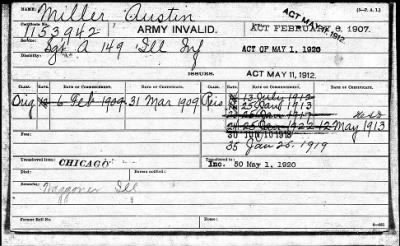 NAME: Miller Austin (3—7. A. I.)
Certificate No. ARMY INVALID. ACT FEBRUARY 6, 1907. ACT MAY 11, 1912.
1153942
Sgt. A 149 Ill Inf ACT OF MAY 1, 1920
Disability:
ISSUES. ACT MAY 11, 1912.
CLASS. RATE. DATE OF COMMENCEMENT. DATE OF CERTIFICATE. CLASS. RATE. DATE OF COMMENCEMENT. DATE OF CERTIFICATE.
Orig 12 6 Feb 1909 31 Mar 1909 Reis 13 July 1912
25 Jan 1913
May 1913
Fees: 30 JUN 10 1913
35 Jan 25. 1919
Transferred from: CHICAGO Transferred to:
Inc. 50 May 1, 1920
Died: Bureau notified:
Remarks:
Waggoner Ill
Former Roll No.